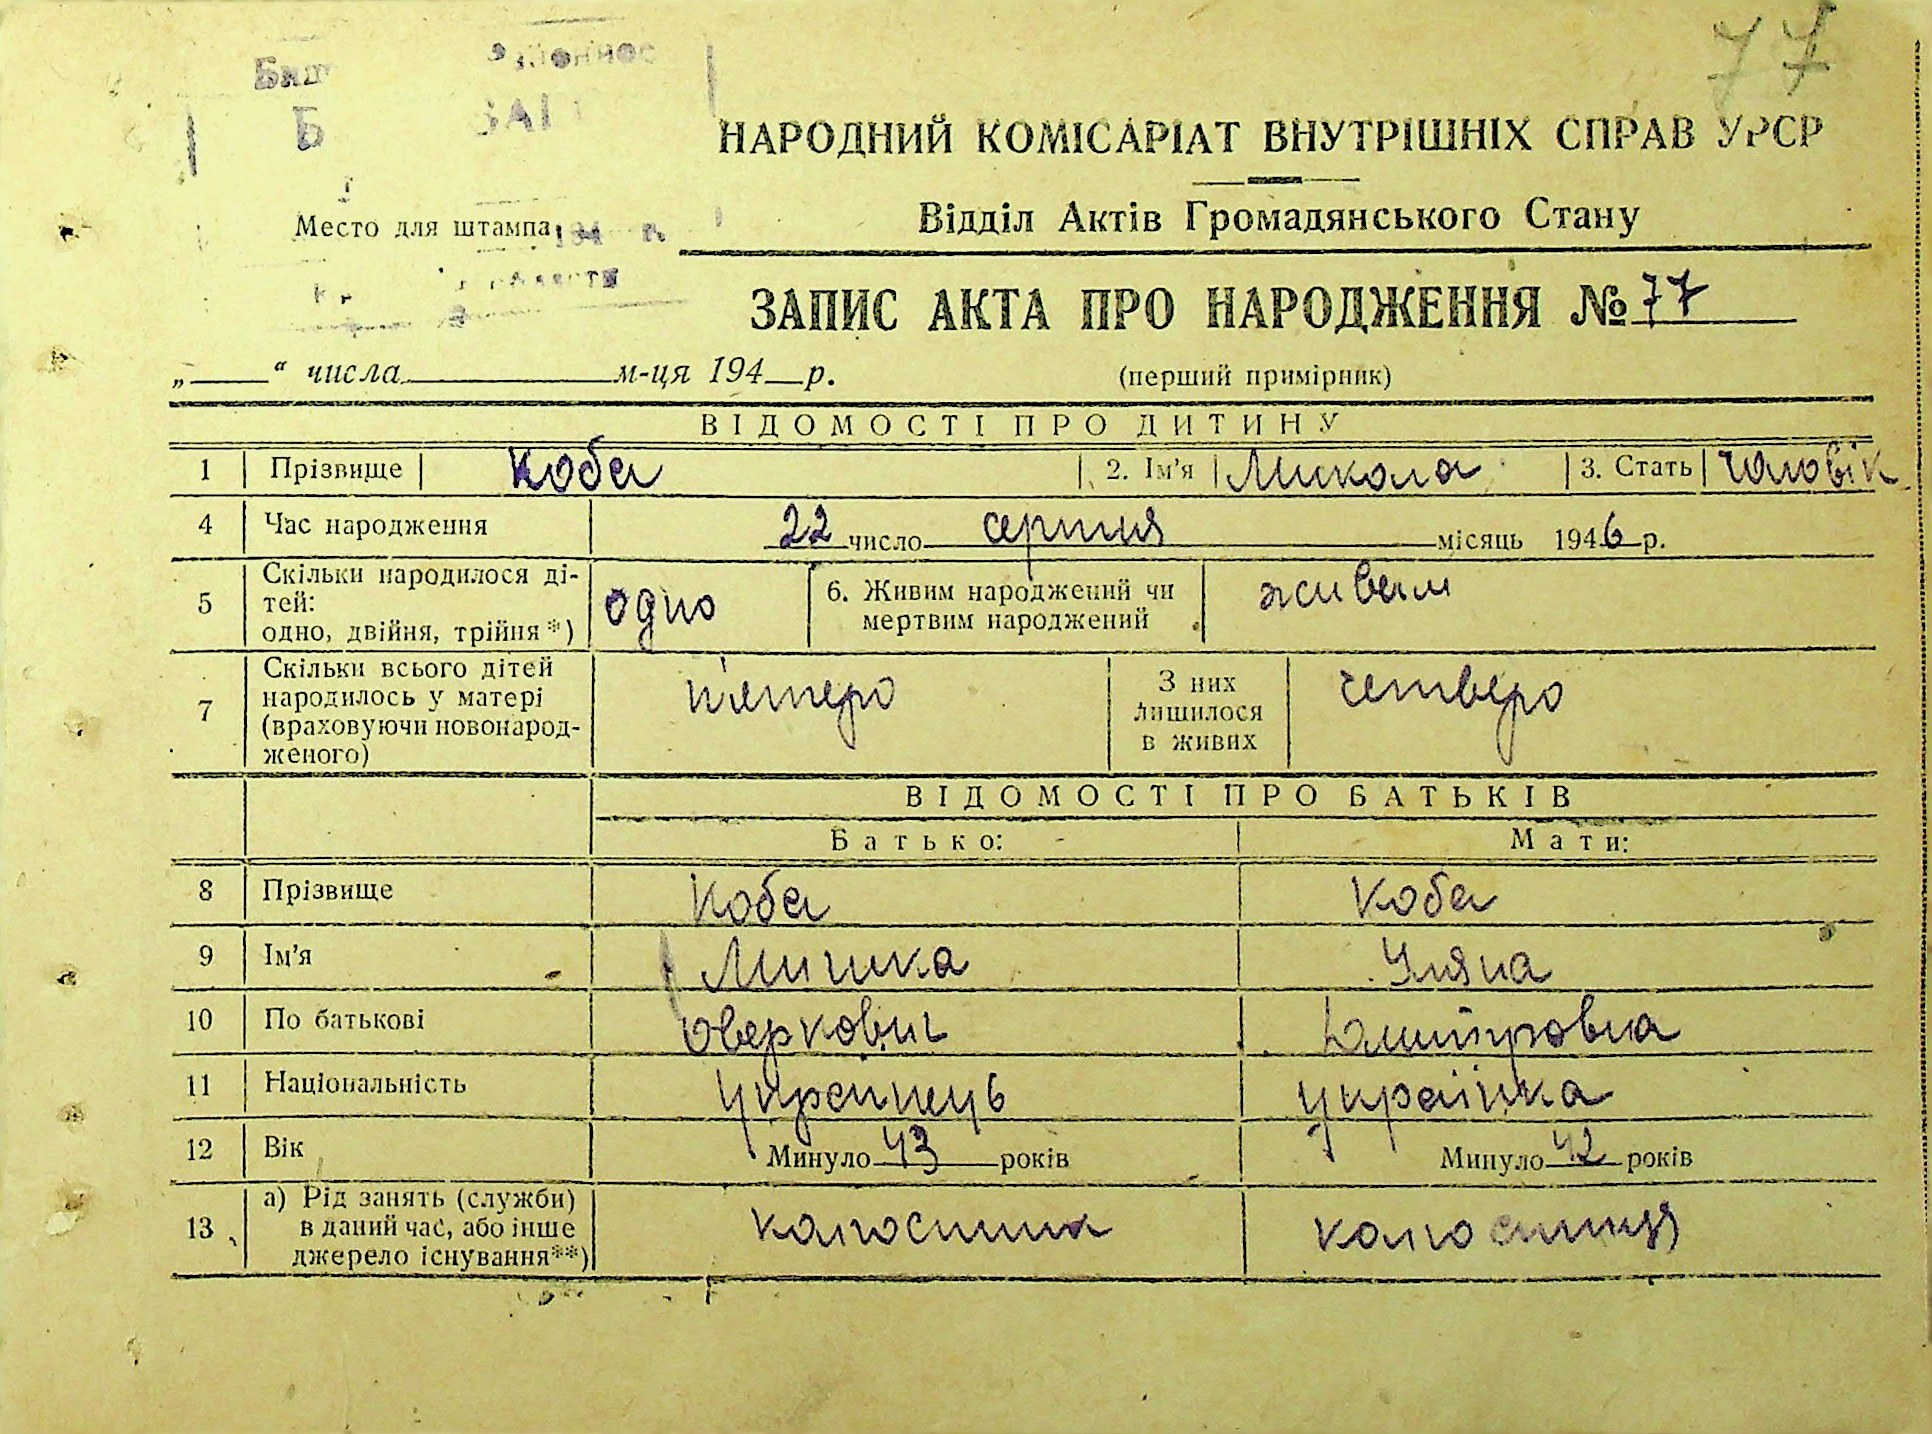 77
НАРОДНИЙ КОМІСАРІАТ ВНУТРІШНІХ СПРАВ УРСР
Відділ Актів Громадянського Стану
Место для штампа
ЗАПИС АКТА ПРО НАРОДЖЕННЯ № 77
„ “ числа м-ця 194 р. (перший примірник)
ВІДОМОСТІ ПРО ДИТИНУ
1 Прізвище Коба 2. Ім’я Микола 3. Стать чоловік
4 Час народження 22 число серпня місяць 1946 р.
5 Скільки народилося ді-
тей:
одно, двійня, трійня*) одно 6. Живим народжений чи
мертвим народжений живим
7 Скільки всього дітей
народилось у матері
(враховуючи новонарод-
женого) п'ятеро З них
лишилося
в живих четверо
ВІДОМОСТІ ПРО БАТЬКІВ
Батько: Мати:
8 Прізвище Коба Коба
9 Ім’я Мишка Уляна
10 По батькові Оверкович Дмитровна
11 Національність українець українка
12 Вік Минуло 43 років Минуло 42 років
13 а) Рід занять (служби)
в даний час, або інше
джерело існування**) колгоспник колгоспниця